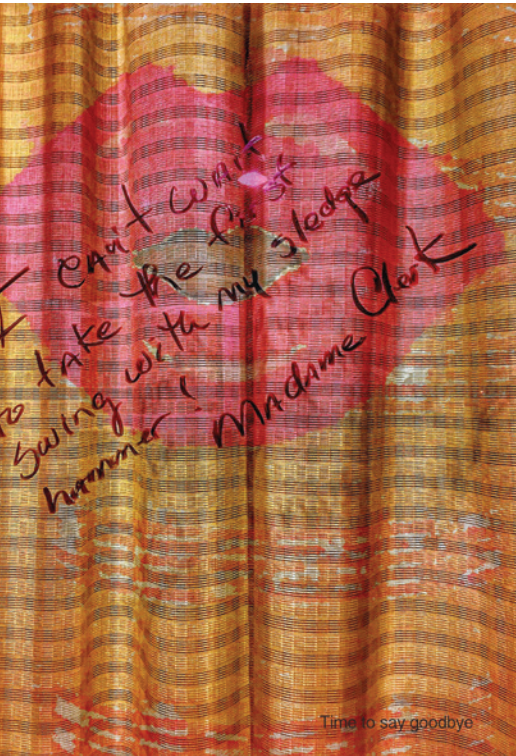 I can't wait
to take the first
swing with my sledge
hammer! Madame Clerk
Time to say goodbye